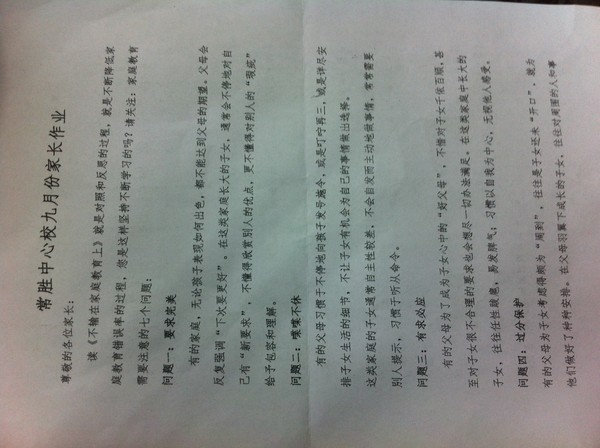 常胜中心校九月份家长作业
尊敬的各位家长：
读《不输在家庭教育上》就是对照和反思的过程，就是不断降低家
庭教育错误率的过程，您是这样坚持不断学习的吗？请关注：家庭教育
需要注意的七个问题：
问题一：要求完美
有的家庭，无论孩子表现如何出色，都不能达到父母的期望，父母会
反复强调“下次要更好”。在这类家庭长大的子女，通常会不停地对自
己有“新要求”，不懂得欣赏别人的优点，更不懂得对别人的“瑕疵”
给予包容和理解。
问题二：喋喋不休
有的父母习惯于不停地向孩子发号施令，或是叮咛再三，或是详尽安
排子女生活的细节，不让子女有机会为自己的事情做出选择。
这类家庭的子女通常自主性较差，不会自发而主动地做事情，常常需要
别人提示，习惯于听从命令。
问题三：有求必应
有的父母为了成为子女心中的“好父母”，不惜对子女千依百顺，甚
至对子女很不合理的要求也会想尽一切办法满足。在这类家庭中长大的
子女，往往任性疏懒，易发脾气；习惯以自我为中心，无视他人感受。
问题四：过分保护
有的父母为子女考虑得颇为“周到”，往往是子女还未“开口”，就为
他们做好了种种安排。在父母羽翼下成长的子女，往往对周围的人和事